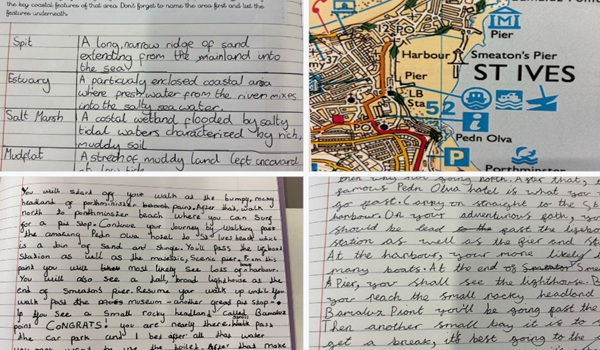 the key coastal features of that area. Don't forget to name the area first and list the
features underneath.
Spit
A long, narrow ridge of sand
extending from the mainland into
the sea
Estuary
A particualy enclosed coastal area
where fresh water from the river mixes
into the salty sea water.
Salt Marsh
A coastal wetland flooded by salty
tidal waters characterized by rich,
muddy soil
Mudflat
A strech of muddy land left uncovered
at low tide
Pier
Harbour
Smeaton's Pier
Pier
ST IVES
LB
Sta
52
PO
Pedn Olva
P
Porthminster
You will start off your walk at the bumpy, many
headland of porthminster beach
north to porthminster beach where you can surf
for a pit stop. Continue your journey by walking past
the amazing Pedn Olva hotel to St Ives head which
is a join of sand and shingle. You'll pass the lifeboat
Station as well as the majestic, scenic pier. From this
point you will most likely see lots of harbour.
You will also see a tall, broad lighthouse at the
end of Smeaton's Pier. Resume your walk up until you
walk past the museum - another great pit stop.
If you see a small rocky headland called Bamaluz
point CONGRATS! you are nearly there. Walk past
the car park and I bet after all that water
you may want to use the toilet. After that make
then why not going north. After that, t
famous Pedn Olva hotel is what you
go past. Carry on straight to the St
harbour. On your adventurous path, yo
should be lead past the lifeboa
station as well as the pier and st
At the harbour, your more likely t
many boats. At the end of Smea
Pier, you shall see the lighthouse. B
you reach the small rocky headland
Bamaluz Piont you'll be going past the
Then another small bay it is to s
get a break, its best going to the